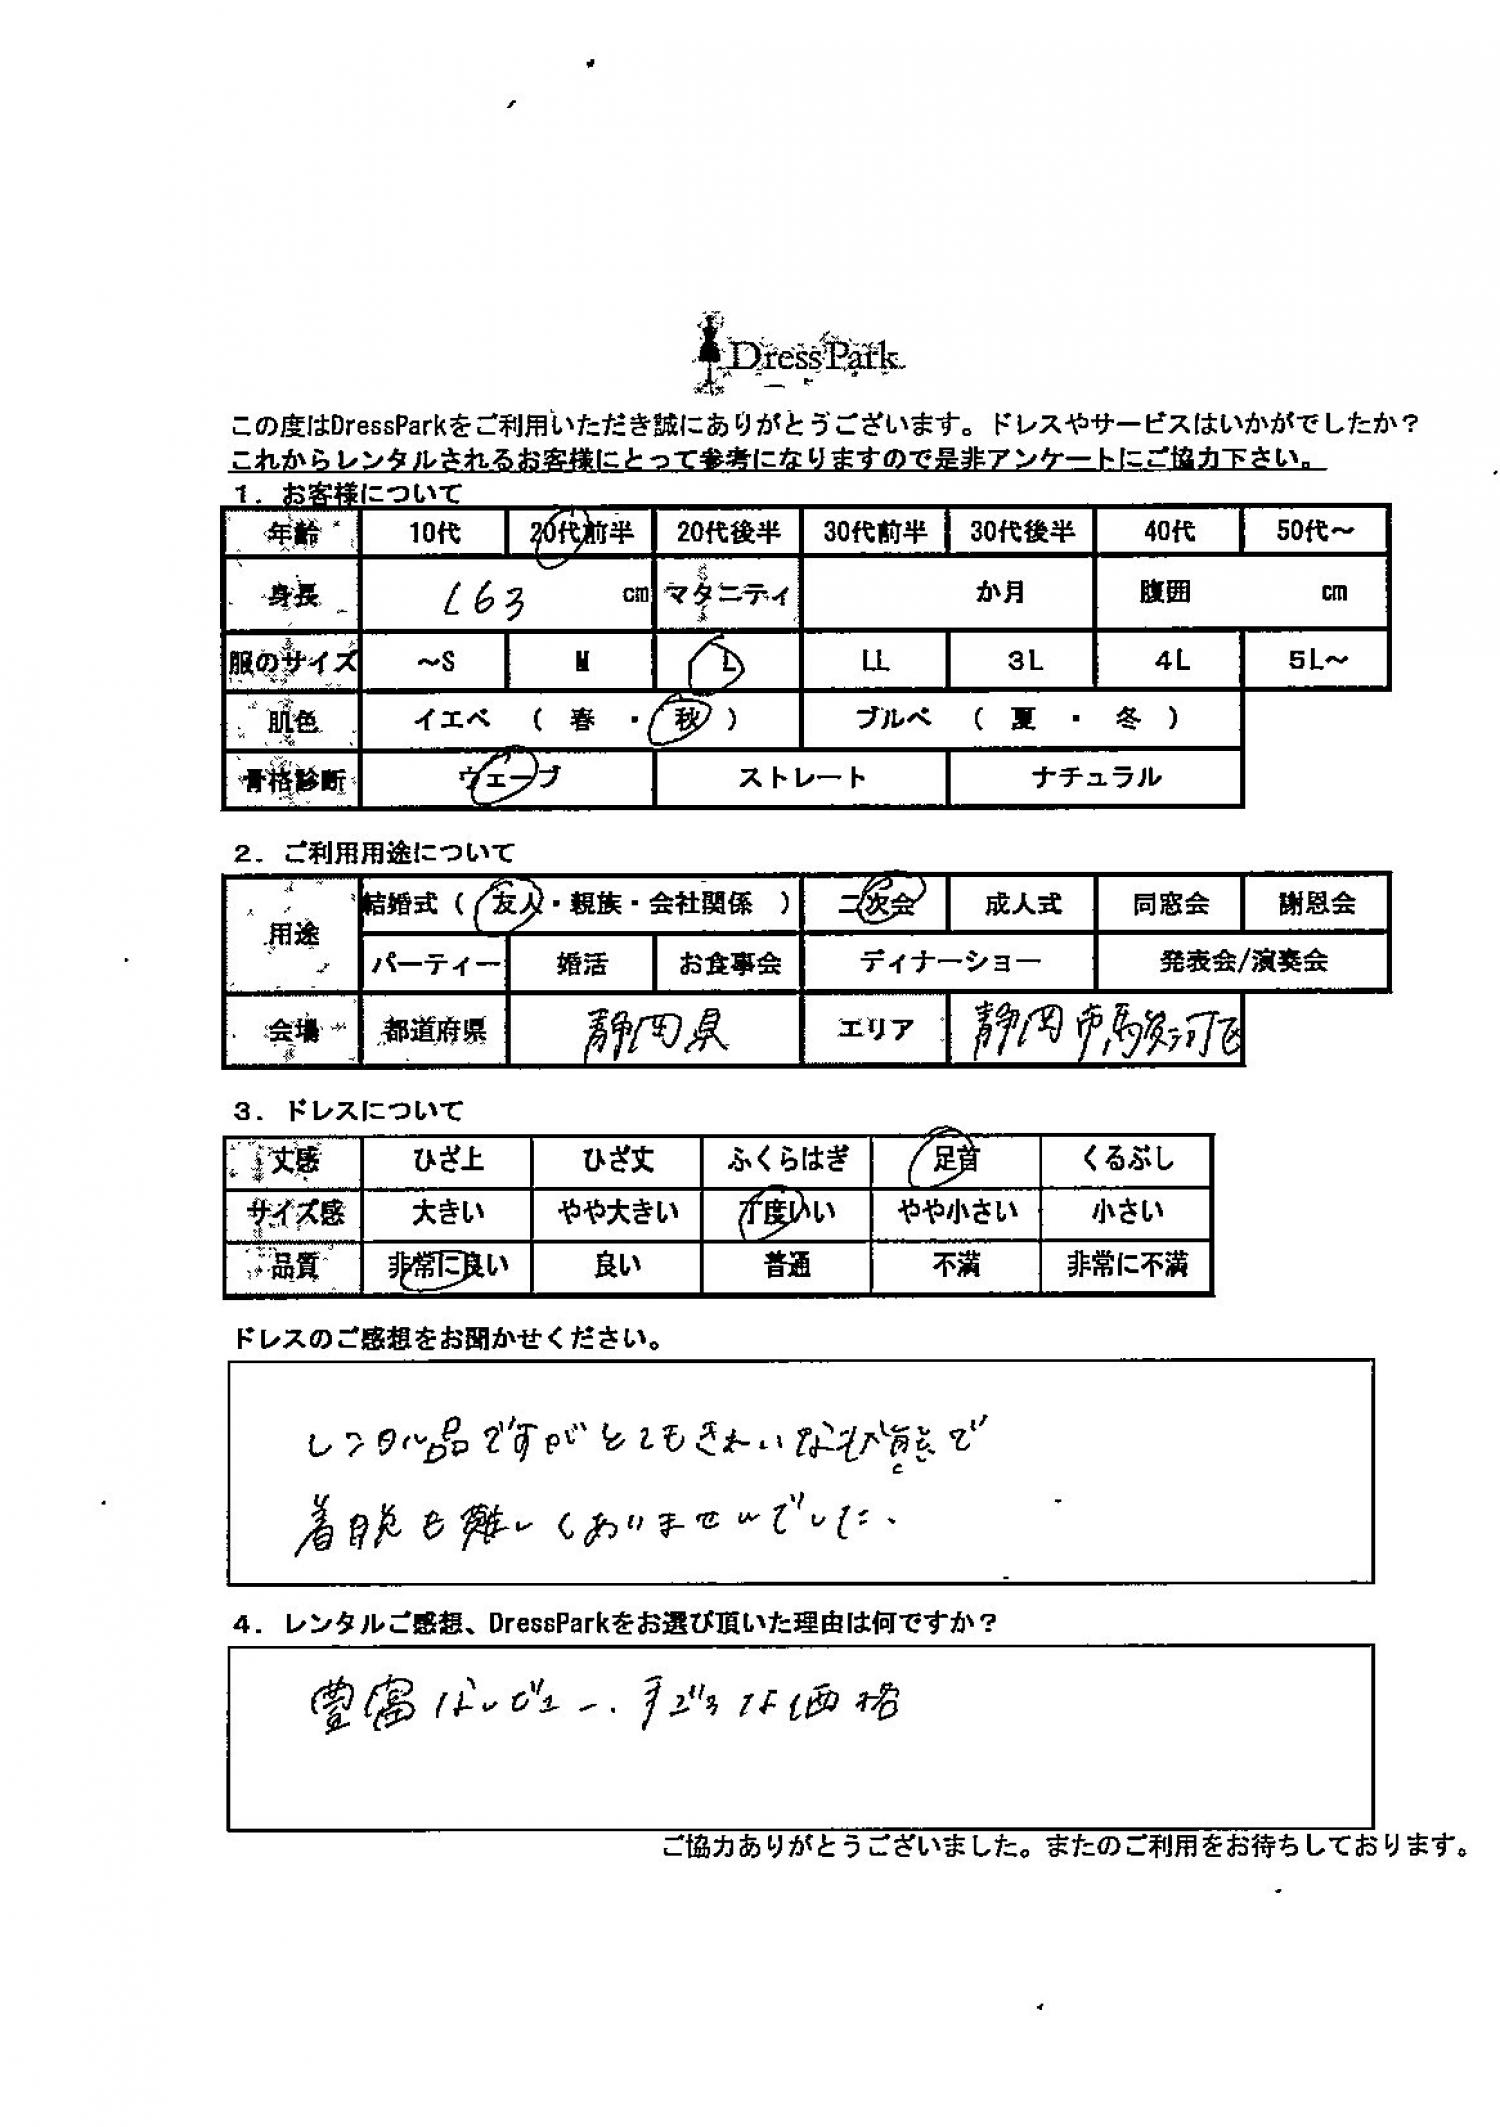 DressPark
この度はDressParkをご利用いただき誠にありがとうございます。ドレスやサービスはいかがでしたか？
これからレンタルされるお客様にとって参考になりますので是非アンケートにご協力下さい。
１．お客様について
年齢 10代 20代前半 20代後半 30代前半 30代後半 40代 50代～
身長 163 cm マタニティ か月 腹囲 cm
服のサイズ ～S M L LL 3L 4L 5L～
肌色 イエベ （ 春 ・ 秋 ） ブルベ （ 夏 ・ 冬 ）
骨格診断 ウェーブ ストレート ナチュラル
２．ご利用用途について
用途 結婚式（ 友人・親族・会社関係 ） 二次会 成人式 同窓会 謝恩会
パーティー 婚活 お食事会 ディナーショー 発表会/演奏会
会場 都道府県 静岡県 エリア 静岡市駿河区
３．ドレスについて
丈感 ひざ上 ひざ丈 ふくらはぎ 足首 くるぶし
サイズ感 大きい やや大きい 丁度いい やや小さい 小さい
品質 非常に良い 良い 普通 不満 非常に不満
ドレスのご感想をお聞かせください。
レンタル品ですがとてもきれいな状態で
着脱も難しくありませんでした。
４．レンタルご感想、DressParkをお選び頂いた理由は何ですか？
豊富なレビュー、手ごろな価格
ご協力ありがとうございました。またのご利用をお待ちしております。